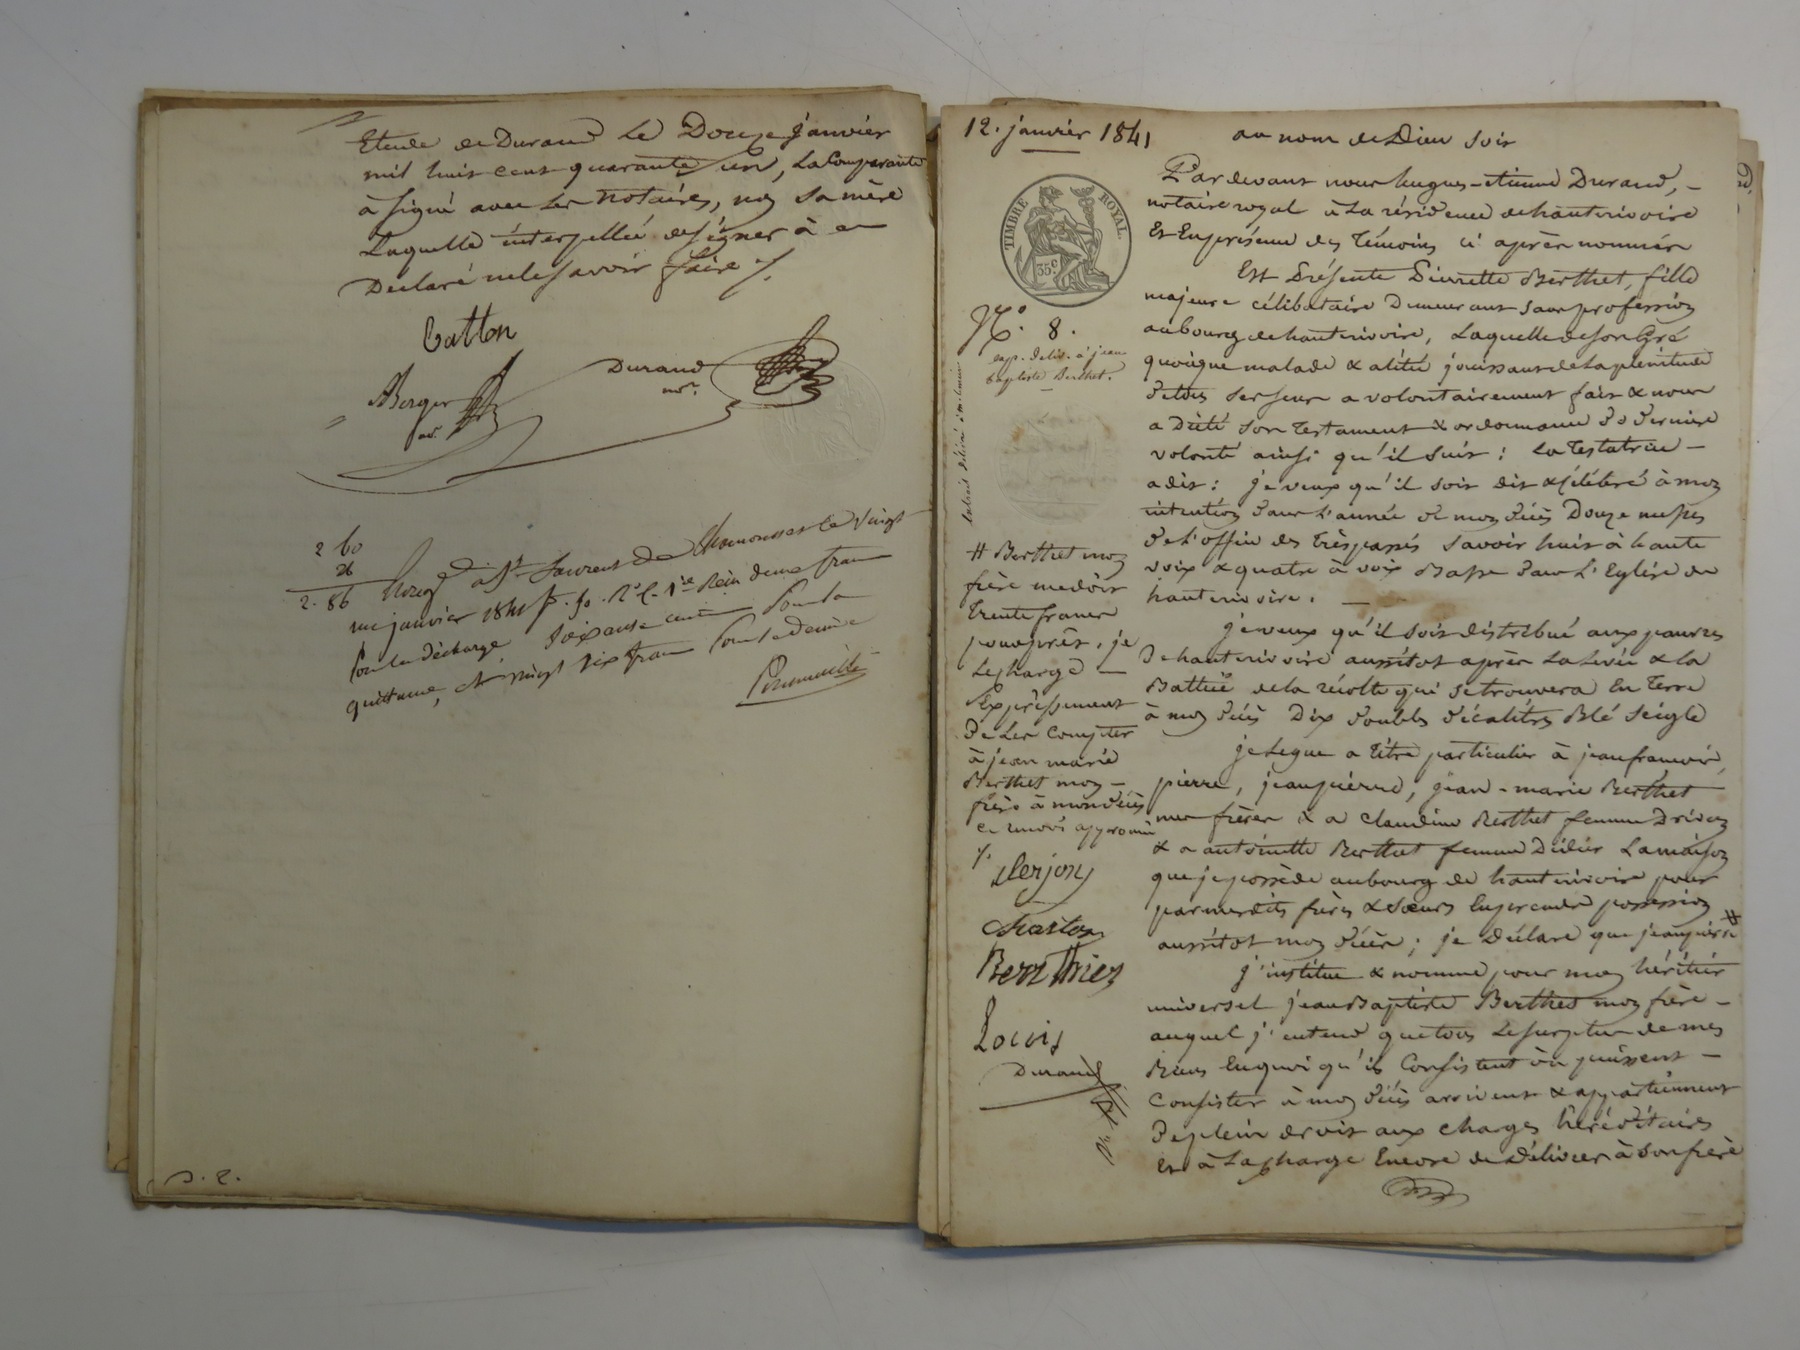 Etude de Durand Le Douze janvier
mil huit cent quarante un, La Comparante
à signé avec les notaires, non sa mère
Laquelle interpellée de signer à
Declaré ne le savoir faire ./.
Catton
Berger
Durand
nre.
2 60
26
2.86
à St Laurent de Chamousset le vingt
janvier 1841 deux francs
Pour la décharge soixante Pour la
quittance, et vingt six Pour le Dixième
12. janvier 1841
TIMBRE ROYAL.
35 c
No. 8.
exp. deliv. à jean
baptiste Berthet.
# Berthet mon
frère me doit
trente francs
pour prêt, je
le charge
Expressement
de les Compter
à jean marie
Berthet mon
frère à mon décès
ce renvoi approuvé
./.
Berthier
Louis
Durand
au nom de Dieu soit
Pardevant nous hugues-etienne Durand,
notaire royal à La résidence de hauterivoire
Et En présence des témoins ci après nommés
Est Présente Pierrette Berthet, fille
majeure célibataire Demeurant sans profession
au bourg de hauterivoire, Laquelle de son Gré
quoique malade & alitée jouissant de La plenitude
de tous ses sens a volontairement fait & nous
a Dicté son testament & ordonnance de derniere
volonté ainsi qu'il suit : La testatrice
a dit : je veux qu'il soit dit & Célébré à mon
intention dans l'année de mon décès Douze messes
de l'office des trèspassés savoir huit à haute
voix & quatre à voix Basse dans L'Eglise de
hauterivoire.
je veux qu'il soit distribué aux pauvres
de hauterivoire aussitot après La Levée & la
Battue de la récolte qui se trouvera En terre
à mon décès Dix doubles décalitres Blé seigle
je Legue a titre particulier à jean francois,
pierre, jean pierre, jean-marie Berthet
mes frères & a Claudine Berthet femme
& a antoinette Berthet femme Didier La maison
que je possède au bourg de hauterivoire pour
par mesdits frères & sœurs En prendre possession
aussitot mon décès ; je déclare que jean pierre #
j'institue & nomme pour mon héritier
universel jean Baptiste Berthet mon frère
auquel j'entend que tous Le surplus de mes
Biens En quoi qu'ils Consistent ou puissent
Consister à mon décès arrivent & appartiennent
de plein droit aux charges héréditaires
Et à La charge Encore de Délivrer à son frère